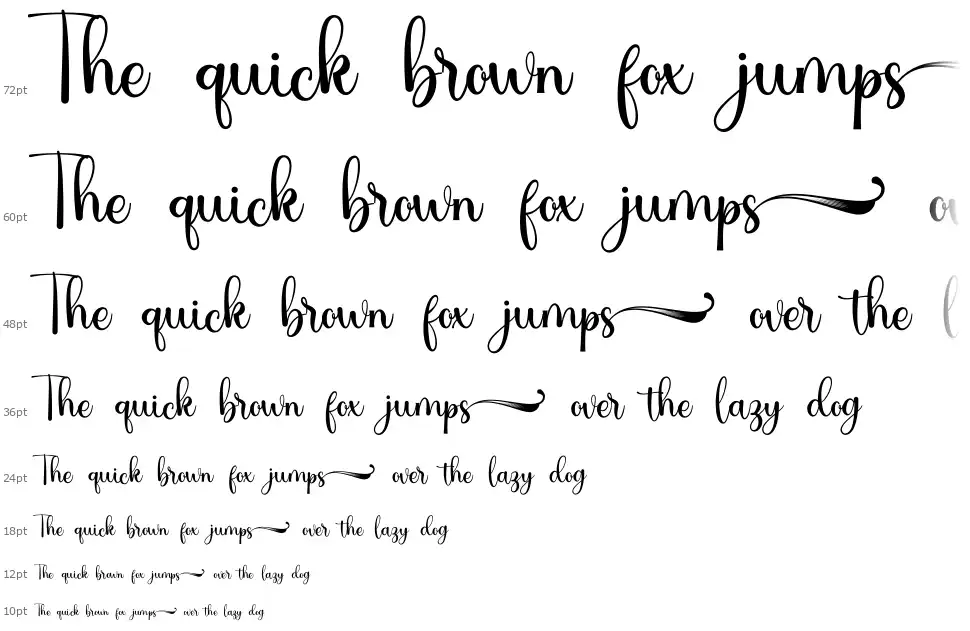 72pt The quick brown fox jumps
60pt The quick brown fox jumps ov
48pt The quick brown fox jumps over the l
36pt The quick brown fox jumps over the lazy dog
24pt The quick brown fox jumps over the lazy dog
18pt The quick brown fox jumps over the lazy dog
12pt The quick brown fox jumps over the lazy dog
10pt The quick brown fox jumps over the lazy dog